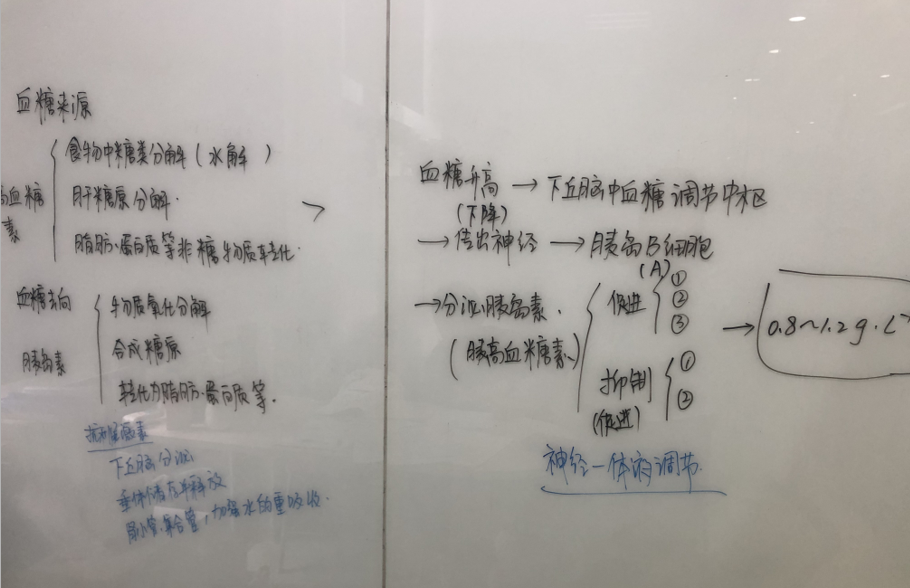 血糖来源
食物中糖类分解(水解)
高血糖素
肝糖原分解.
脂肪.蛋白质等非糖物质转化.
血糖去向
物质氧化分解
胰岛素
合成糖原
转化为脂肪.蛋白质等.
抗利尿激素
下丘脑分泌
垂体储存并释放
肾小管.集合管,加强水的重吸收.
血糖升高 → 下丘脑中血糖调节中枢
(下降)
→传出神经 → 胰岛B细胞
(A)
→分泌胰岛素.
(胰高血糖素)
促进
①
②
③
抑制
(促进)
①
②
→ 0.8~1.2g·L
神经-体液调节.